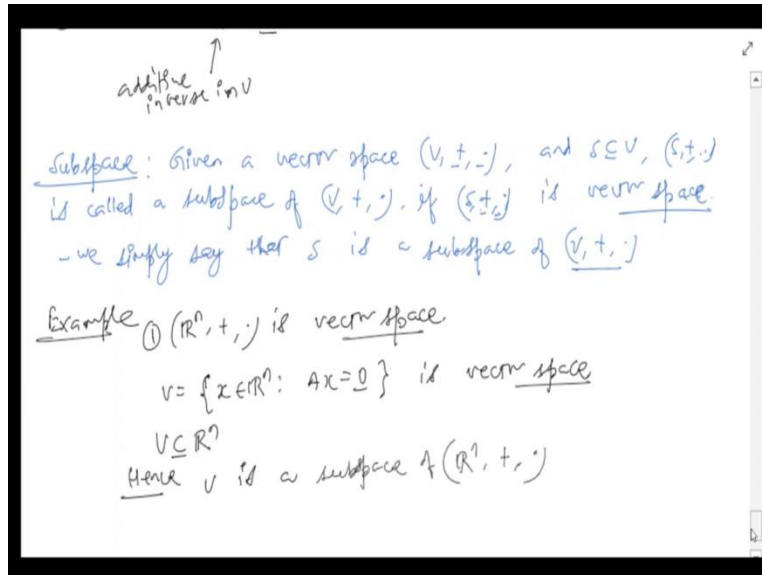 additive
inverse in V
Subspace: Given a vector space (V, +, ·), and S ⊆ V, (S, +, ·)
is called a subspace of (V, +, ·), if (S, +, ·) is vector space.
- we simply say that S is a subspace of (V, +, ·)
Example ① (ℝⁿ, +, ·) is vector space
V = {x ∈ ℝⁿ : Ax = 0} is vector space
V ⊆ ℝⁿ
Hence V is a subspace of (ℝⁿ, +, ·)